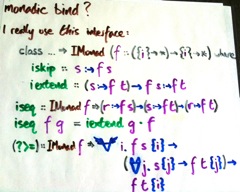 monadic bind?
I really use this interface:
class ... ⇒ IMonad (f :: ({i}→*)→({i}→*)) where
iskip :: s :→ f s
iextend :: (s :→ f t) → f s :→ f t
iseq :: IMonad f ⇒ (r :→ f s)→(s :→ f t)→(r :→ f t)
iseq f g = iextend g · f
(?>=) :: IMonad f ⇒ ∀ i. f s {i} →
(∀ j. s {j} → f t {j}) →
f t {i}